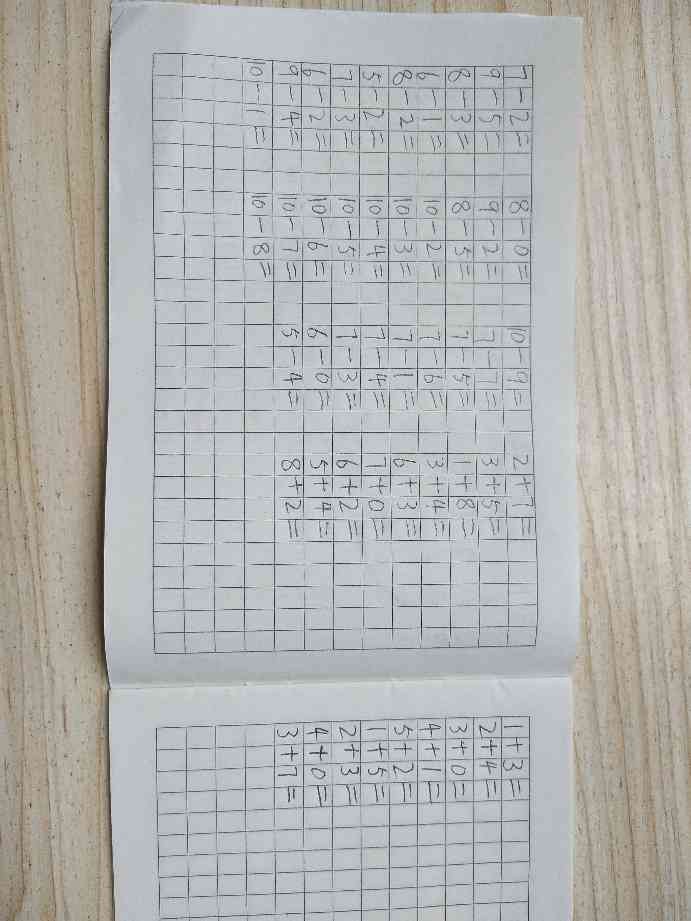 7-2= 8-0= 10-9= 2+7=
9-5= 9-2= 7-7= 3+5=
8-3= 8-5= 7-5= 1+8=
6-1= 10-2= 7-6= 3+4=
8-2= 10-3= 7-1= 6+3=
5-2= 10-4= 7-4= 7+0=
7-3= 10-5= 7-3= 6+2=
6-2= 10-6= 6-0= 5+4=
9-4= 10-7= 5-4= 8+2=
10-1= 10-8=
1+3=
2+4=
3+0=
4+1=
5+2=
1+5=
2+3=
4+0=
3+7=